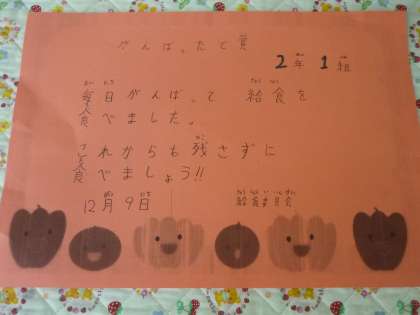 がんばったで賞
2年1組
毎日がんばって 給食を
食べました。
これからも残さずに
食べましょう!!
12月9日 給食委員会